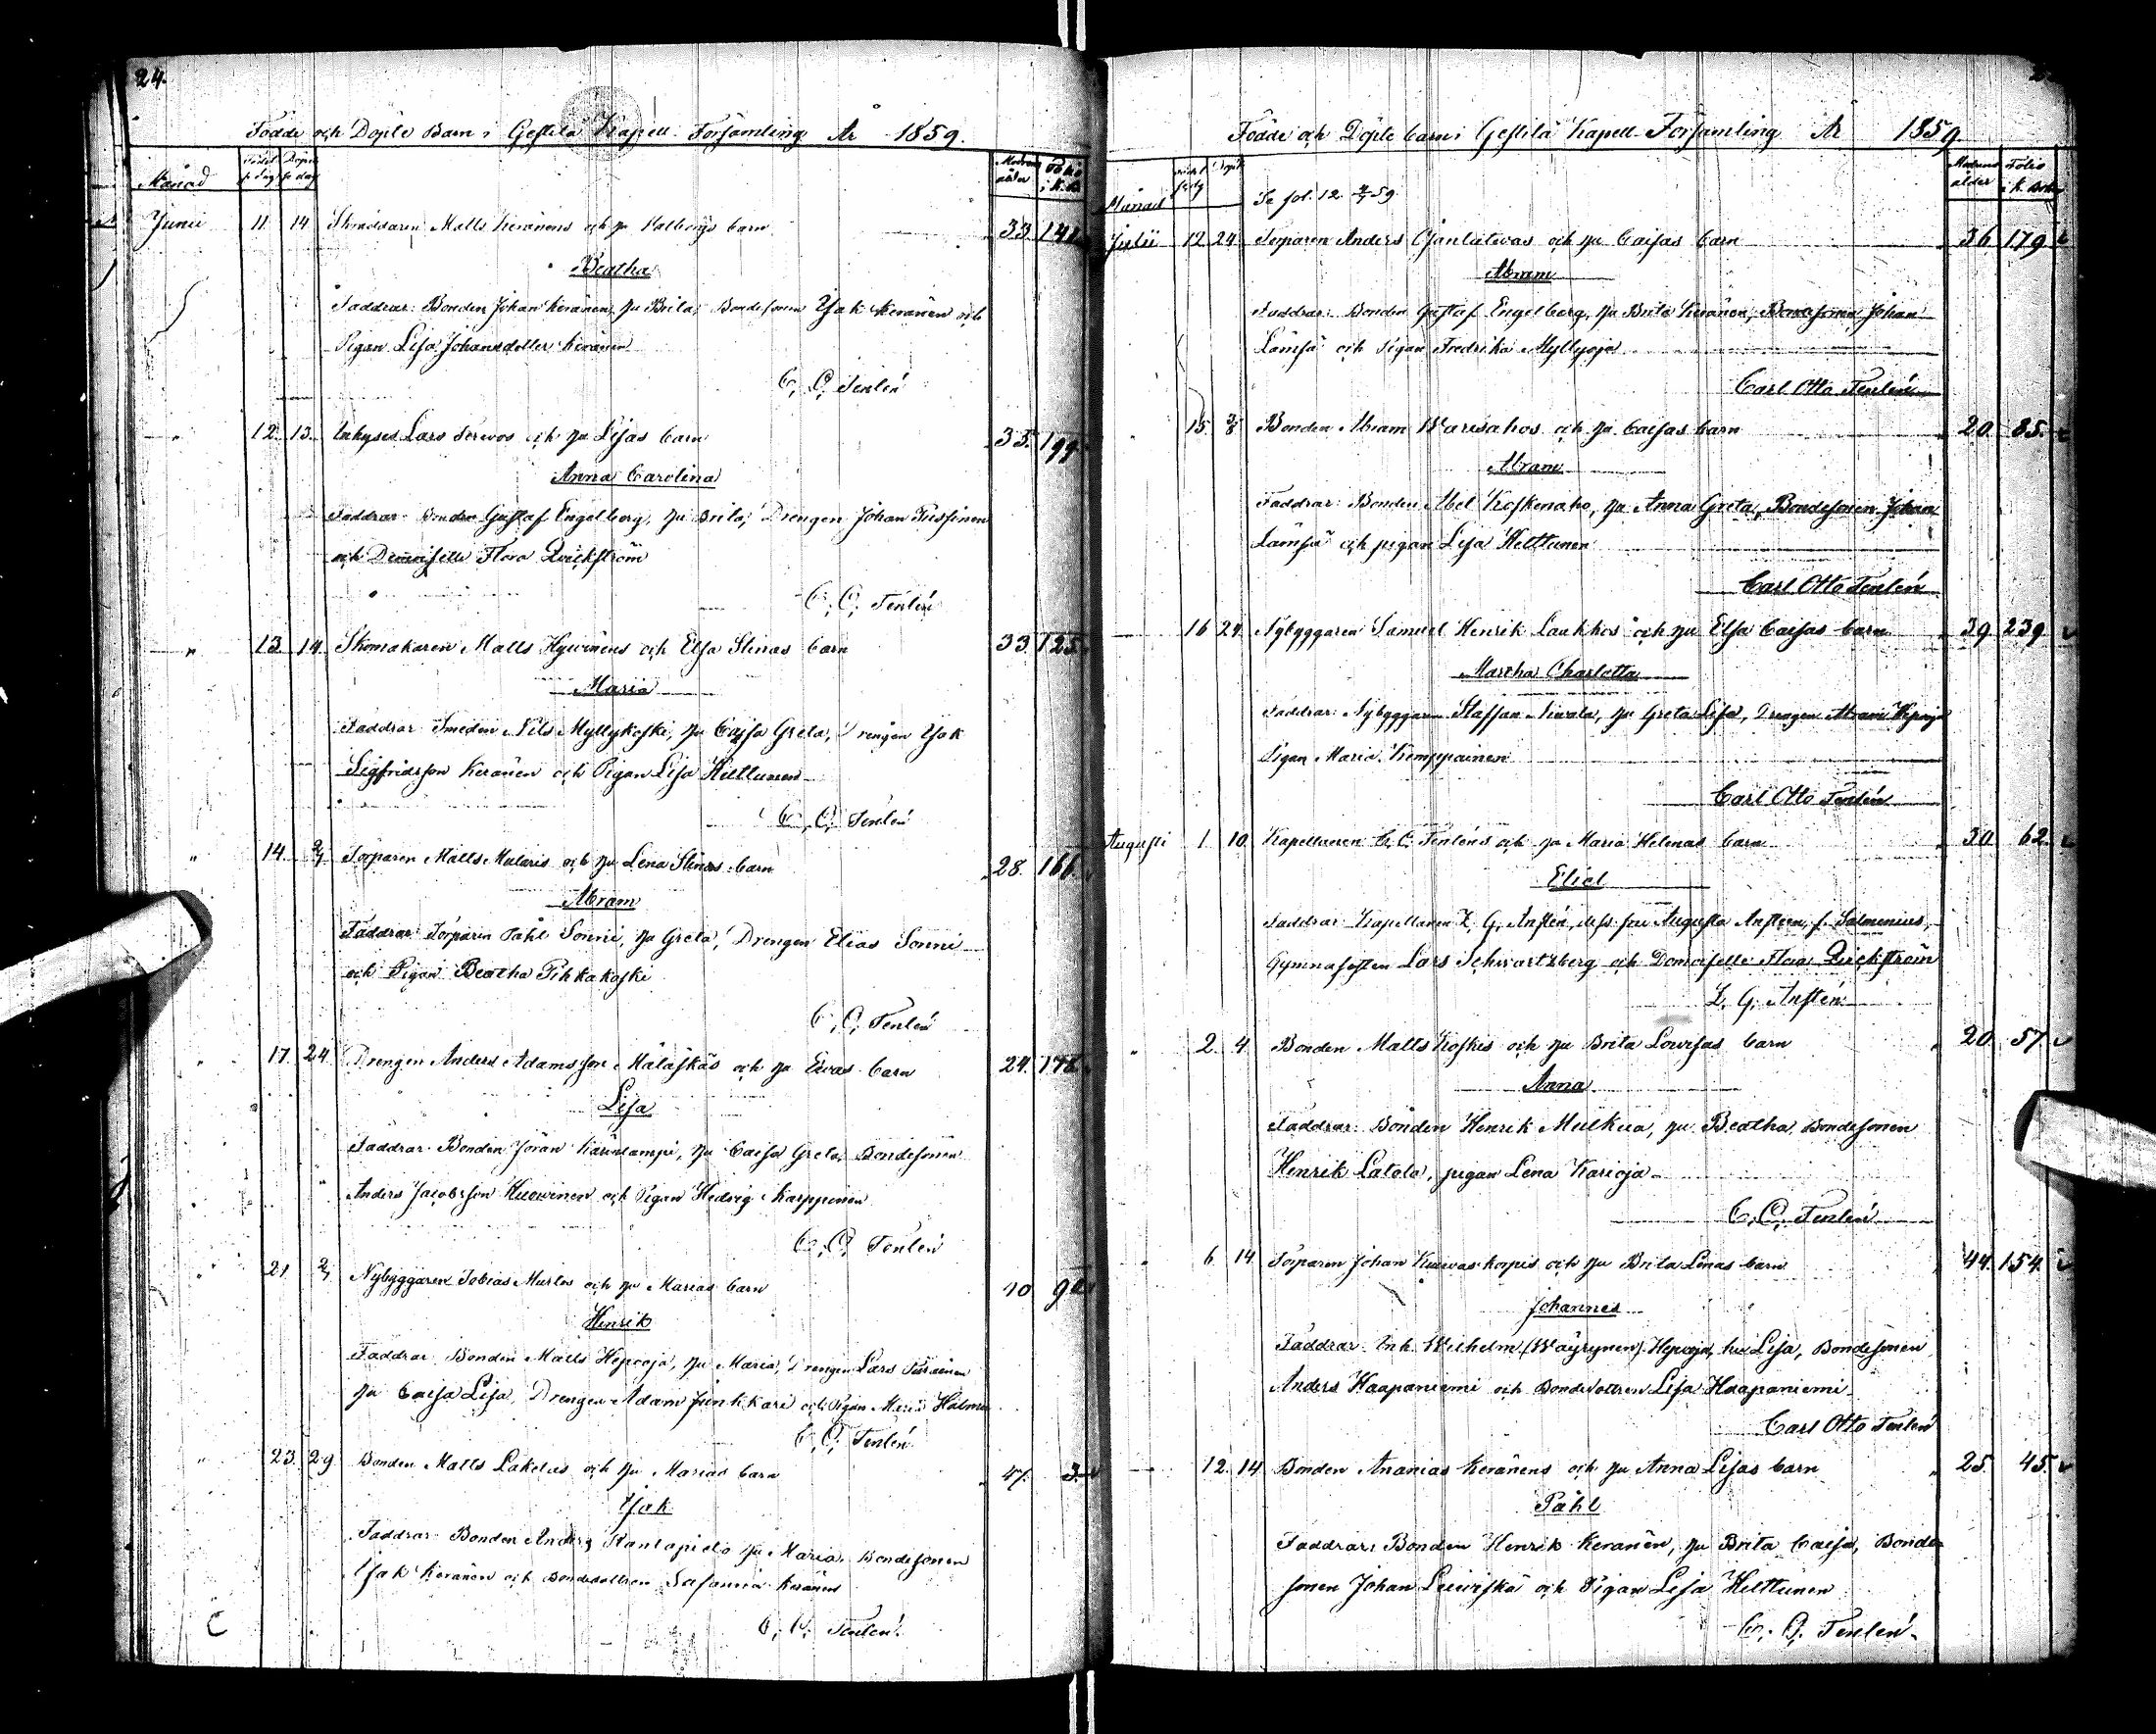 24.
Födde och Döpte Barn i Gestilä Kapell Församling År 1859.
Månad Född Döpt Modrens ålder Folio i K. B.
Junii 11. 14. Skräddaren Matts Keränens och hu Walborgs barn 33. 141
Beatha
Faddrar: Bonden Johan Keränen, hu Brita, Bondesonen Isak Keränen och
Pigan Lisa Johansdotter Keränen
C. O. Tenlén
" 12. 13. Inhyses Lars Servos och hu Lisas barn 33. 199.
Anna Carolina
Faddrar: Bonden Gustaf Engelberg, hu Brita, Drengen Johan
och Demoiselle Flora Qvickström
C. O. Tenlén
" 13. 14. Skomakaren Matts Hyvönens och Elsa Stinas barn 33. 125.
Maria
Faddrar: Smeden Nils Myllykoski, hu Cajsa Greta, Drengen Isak
Sigfridsson Keränen och Pigan Lisa Hilttunen
C. O. Tenlén
" 14. 2/7 Torparen Matts Mularis och hu Lena Stinas barn 28. 166.
Abram
Faddrar: Torparen Påhl Sonni, hu Greta, Drengen Elias Sonni
och Pigan Beatha Pihkakoski
C. O. Tenlén
" 17. 24. Drengen Anders Adamsson Mälaskäs och hu Evas barn 24. 178.
Lisa
Faddrar: Bonden Jöran Karinlampi, hu Caisa Greta, Bondesonen
Anders Jacobsson Huovinen och Pigan Hedvig Karppinen
C. O. Tenlén
" 21. 2/7 Nybyggaren Tobias Murtos och hu Marias barn 40
Henrik
Faddrar: Bonden Matts Hepooja, hu Maria, Drengen Lars
hu Caisa Lisa, Drengen Adam Junkkari och Pigan Maria
C. O. Tenlén
" 23. 29 Bonden Matts Lakelas och hu Marias barn 47. 3.
Isak
Faddrar: Bonden Anders Rantapielo hu Maria, Bondesonen
Isak Keränen och Bondedottren Susanna Keränen
C. O. Tenlén.
Födde och Döpte barn i Gestilä Kapell Församling År 1859
Månad Född Döpt Modrens ålder Folio i K. Boken
Se fol. 12. 59
Julii 12 24 Torparen Anders Ojanlatvas och hu Caisas barn 36. 179
Abram
Faddrar: Bonden Gustaf Engelberg, hu Brita Keränen, Bondesonen Johan
Lämsä och Pigan Fredrika Myllyoja
Carl Otto Tenlén
" 15. 3/8 Bonden Abram Warisahos och hu Caisas barn 20. 85.
Abram
Faddrar: Bonden Abel Koskenaho, hu Anna Greta, Bondesonen Johan
Lämsä och pigan Lisa Hilttunen
Carl Otto Tenlén
16 24 Nybyggaren Samuel Henrik Laukkos och hu Elsa Caisas barn 39 239
Martha Charlotta
Faddrar: Nybyggaren Staffan Nivala, hu Greta Lisa, Drengen Abram
Pigan Maria Kemppainen
Carl Otto Tenlén
Augusti 1. 10. Kapellanen C. O. Tenléns och hu Maria Helenas barn 30 62
Eliel
Faddrar: Kapellanen Z. G. Anstén, dess fru Augusta Anstén, f. Salmenius,
Gymnasisten Lars Schwartzberg och Demoiselle Flora Qvickström
Z. G. Anstén
" 2. 4. Bonden Matts Koskis och hu Brita Lovisas barn 20. 57
Anna
Faddrar: Bonden Henrik Mulkua, hu Beatha, Bondesonen
Henrik Latola, pigan Lena Karioja
C. O. Tenlén
6. 14 Torparen Johan Kuivaskorpis och hu Brita Lenas barn 44. 154.
Johannes
Faddrar: Inh. Wilhelm (Wäyrynen) Hepooja, hu Lisa, Bondesonen
Anders Haapaniemi och Bondedottren Lisa Haapaniemi
Carl Otto Tenlén
12. 14 Bonden Ananias Keränens och hu Anna Lisas barn 25. 45.
Påhl
Faddrar: Bonden Henrik Keränen, hu Brita Caisa, Bonde-
sonen Johan och Pigan Lisa Hilttunen
C. O. Tenlén